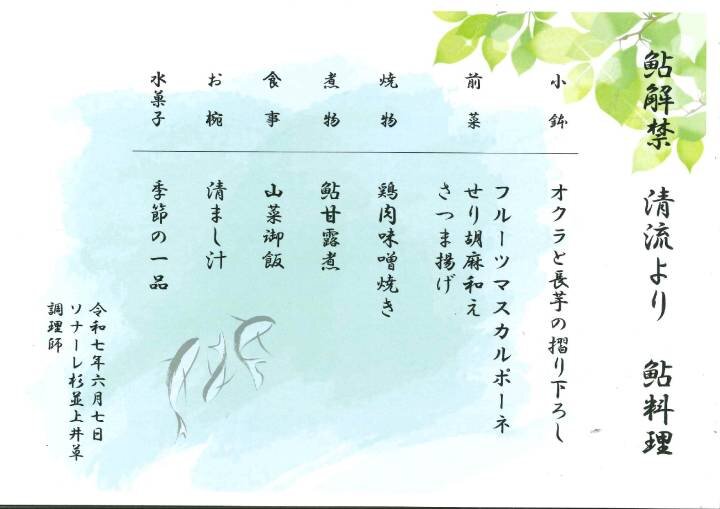 鮎解禁　清流より　鮎料理
小鉢　オクラと長芋の摺り下ろし
前菜　フルーツマスカルポーネ
せり胡麻和え
さつま揚げ
焼物　鶏肉味噌焼き
煮物　鮎甘露煮
食事　山菜御飯
お椀　清まし汁
水菓子　季節の一品
令和七年六月七日
ソナーレ杉並上井草
調理師